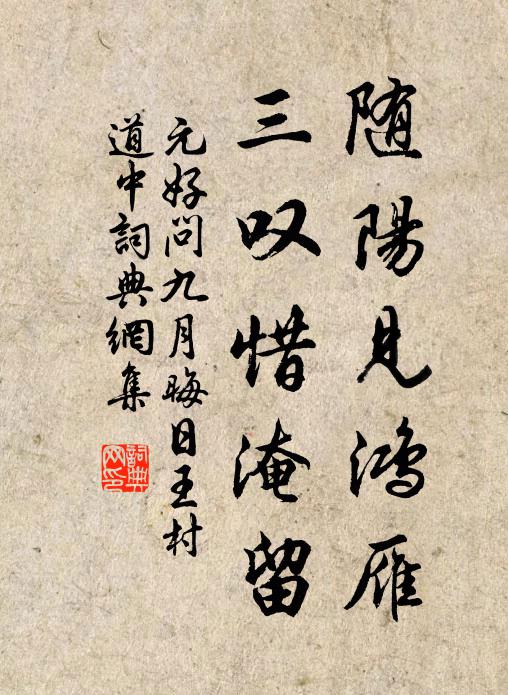 随陽見鸿雁
三叹惜淹留
元好问九月晦日王村
道中詞典網集
詞典网印